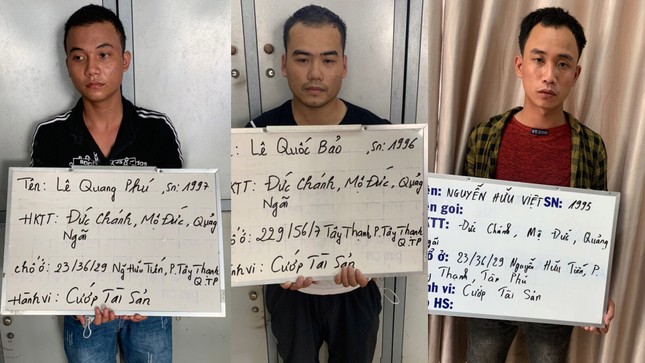 Tên: Lê Quang Phú, Sn: 1997
HKTT: Đức Chánh, Mộ Đức, Quảng
Ngãi
chổ ở: 23/36/29 Ng Hữu Tiến, P. Tây Thạnh
Q.TP
Hành vi: Cướp Tài Sản
: Lê Quốc Bảo, Sn: 1996
KTT: Đức Chánh, Mộ Đức, Quảng
Ngãi
ổ ở: 229/56/7 Tây Thạnh, P. Tây Thạnh
Q.TP
nh vi: Cướp Tài Sản
ên: NGUYỄN HỮU VIỆT SN: 1995
ên gọi:
TT: Đức Chánh, Mộ Đức, Quảng
gãi
ỗ ở: 23/36/29 Nguyễn Hữu Tiến, P.
y Thạnh, Tân Phú
nh vi: Cướp Tài Sản
HS: